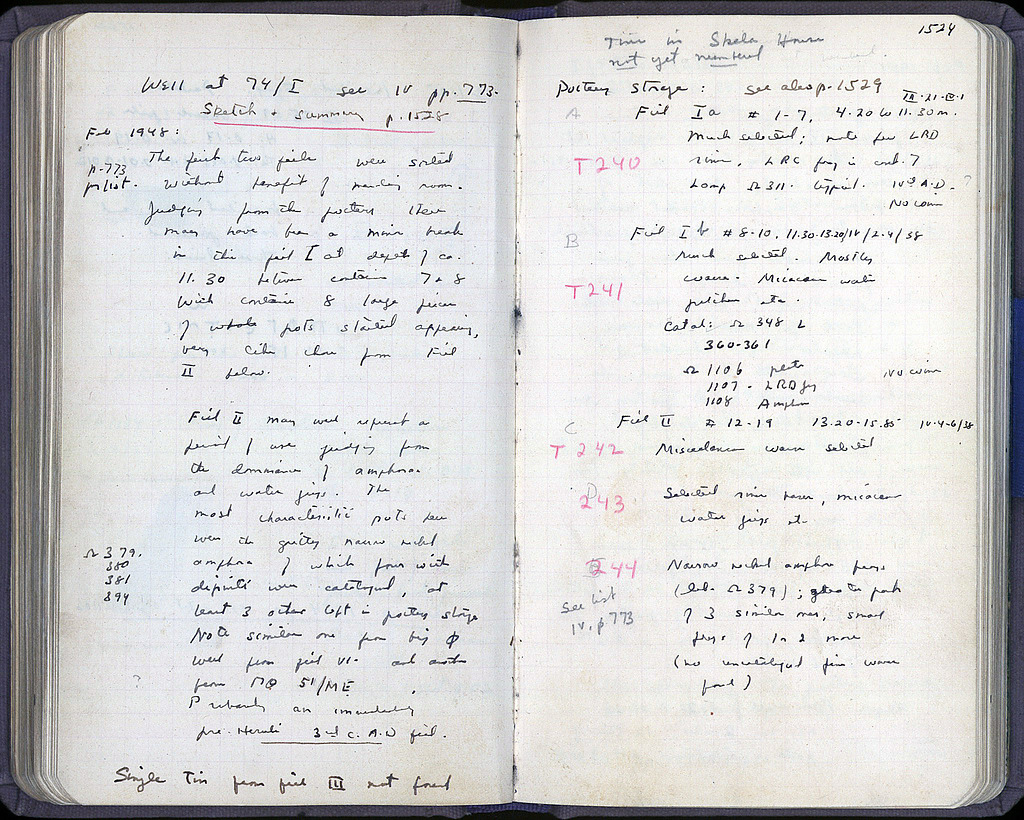 Well at 74/I see IV pp. 773.
Sketch + summary p. 1528
Feb 1948:
The first two fills were sorted
p. 773
for list. without benefit of mending room.
Judging from the pottery there
may have been a main break
in this fill I at depth of ca.
11.30 between containers 7 + 8
With container 8 large pieces
of whole pots started appearing,
very like those from Fill
II below.
Fill II may well represent a
period of use judging from
the dominance of amphoras
and water jugs. The
most characteristic pots here
were the gritty narrow necked
Ω 379.
380
381
394
amphoras of which four with
dipinti were catalogued, at
least 3 others left in pottery storage
Note similar one from big Φ
well from fill VI - and another
from ΠΘ 51/ΜΕ.
?
Probably an immediately
pre-Heruli 3rd c. A.D fill.
Single Tin from fill III not found
1524
Tins in Skela House
not yet numbered
Pottery Storage: see also p. 1529
A Fill Ia # 1-7, 4.20 to 11.30 m.
Much selected; note few LRD
T 240
rims, LRC frag in cont. 7
Lamp Ω 311. typical. IVth A.D. ?
No coin
B Fill I b # 8-10, 11.30-13.20/IV/2-4/38
Much selected. Mostly
T 241
coarse. Micaceous water
pitchers etc.
Catal: Ω 348 L
360-361
Ω 1106 plate
1107 - LRD jug
1108 Amphora
No coins
C Fill II # 12-19 13.20-15.85 IV-4-6/38
T 242 Miscellaneous wares selected
D
243
Selected rims bases, micaceous
water jugs etc.
244 Narrow necked amphora frags
(like Ω 379); greater part
See list
IV. p 773
of 3 similar ones, small
frags of 1 or 2 more
(no uncatalogued fine ware
found)